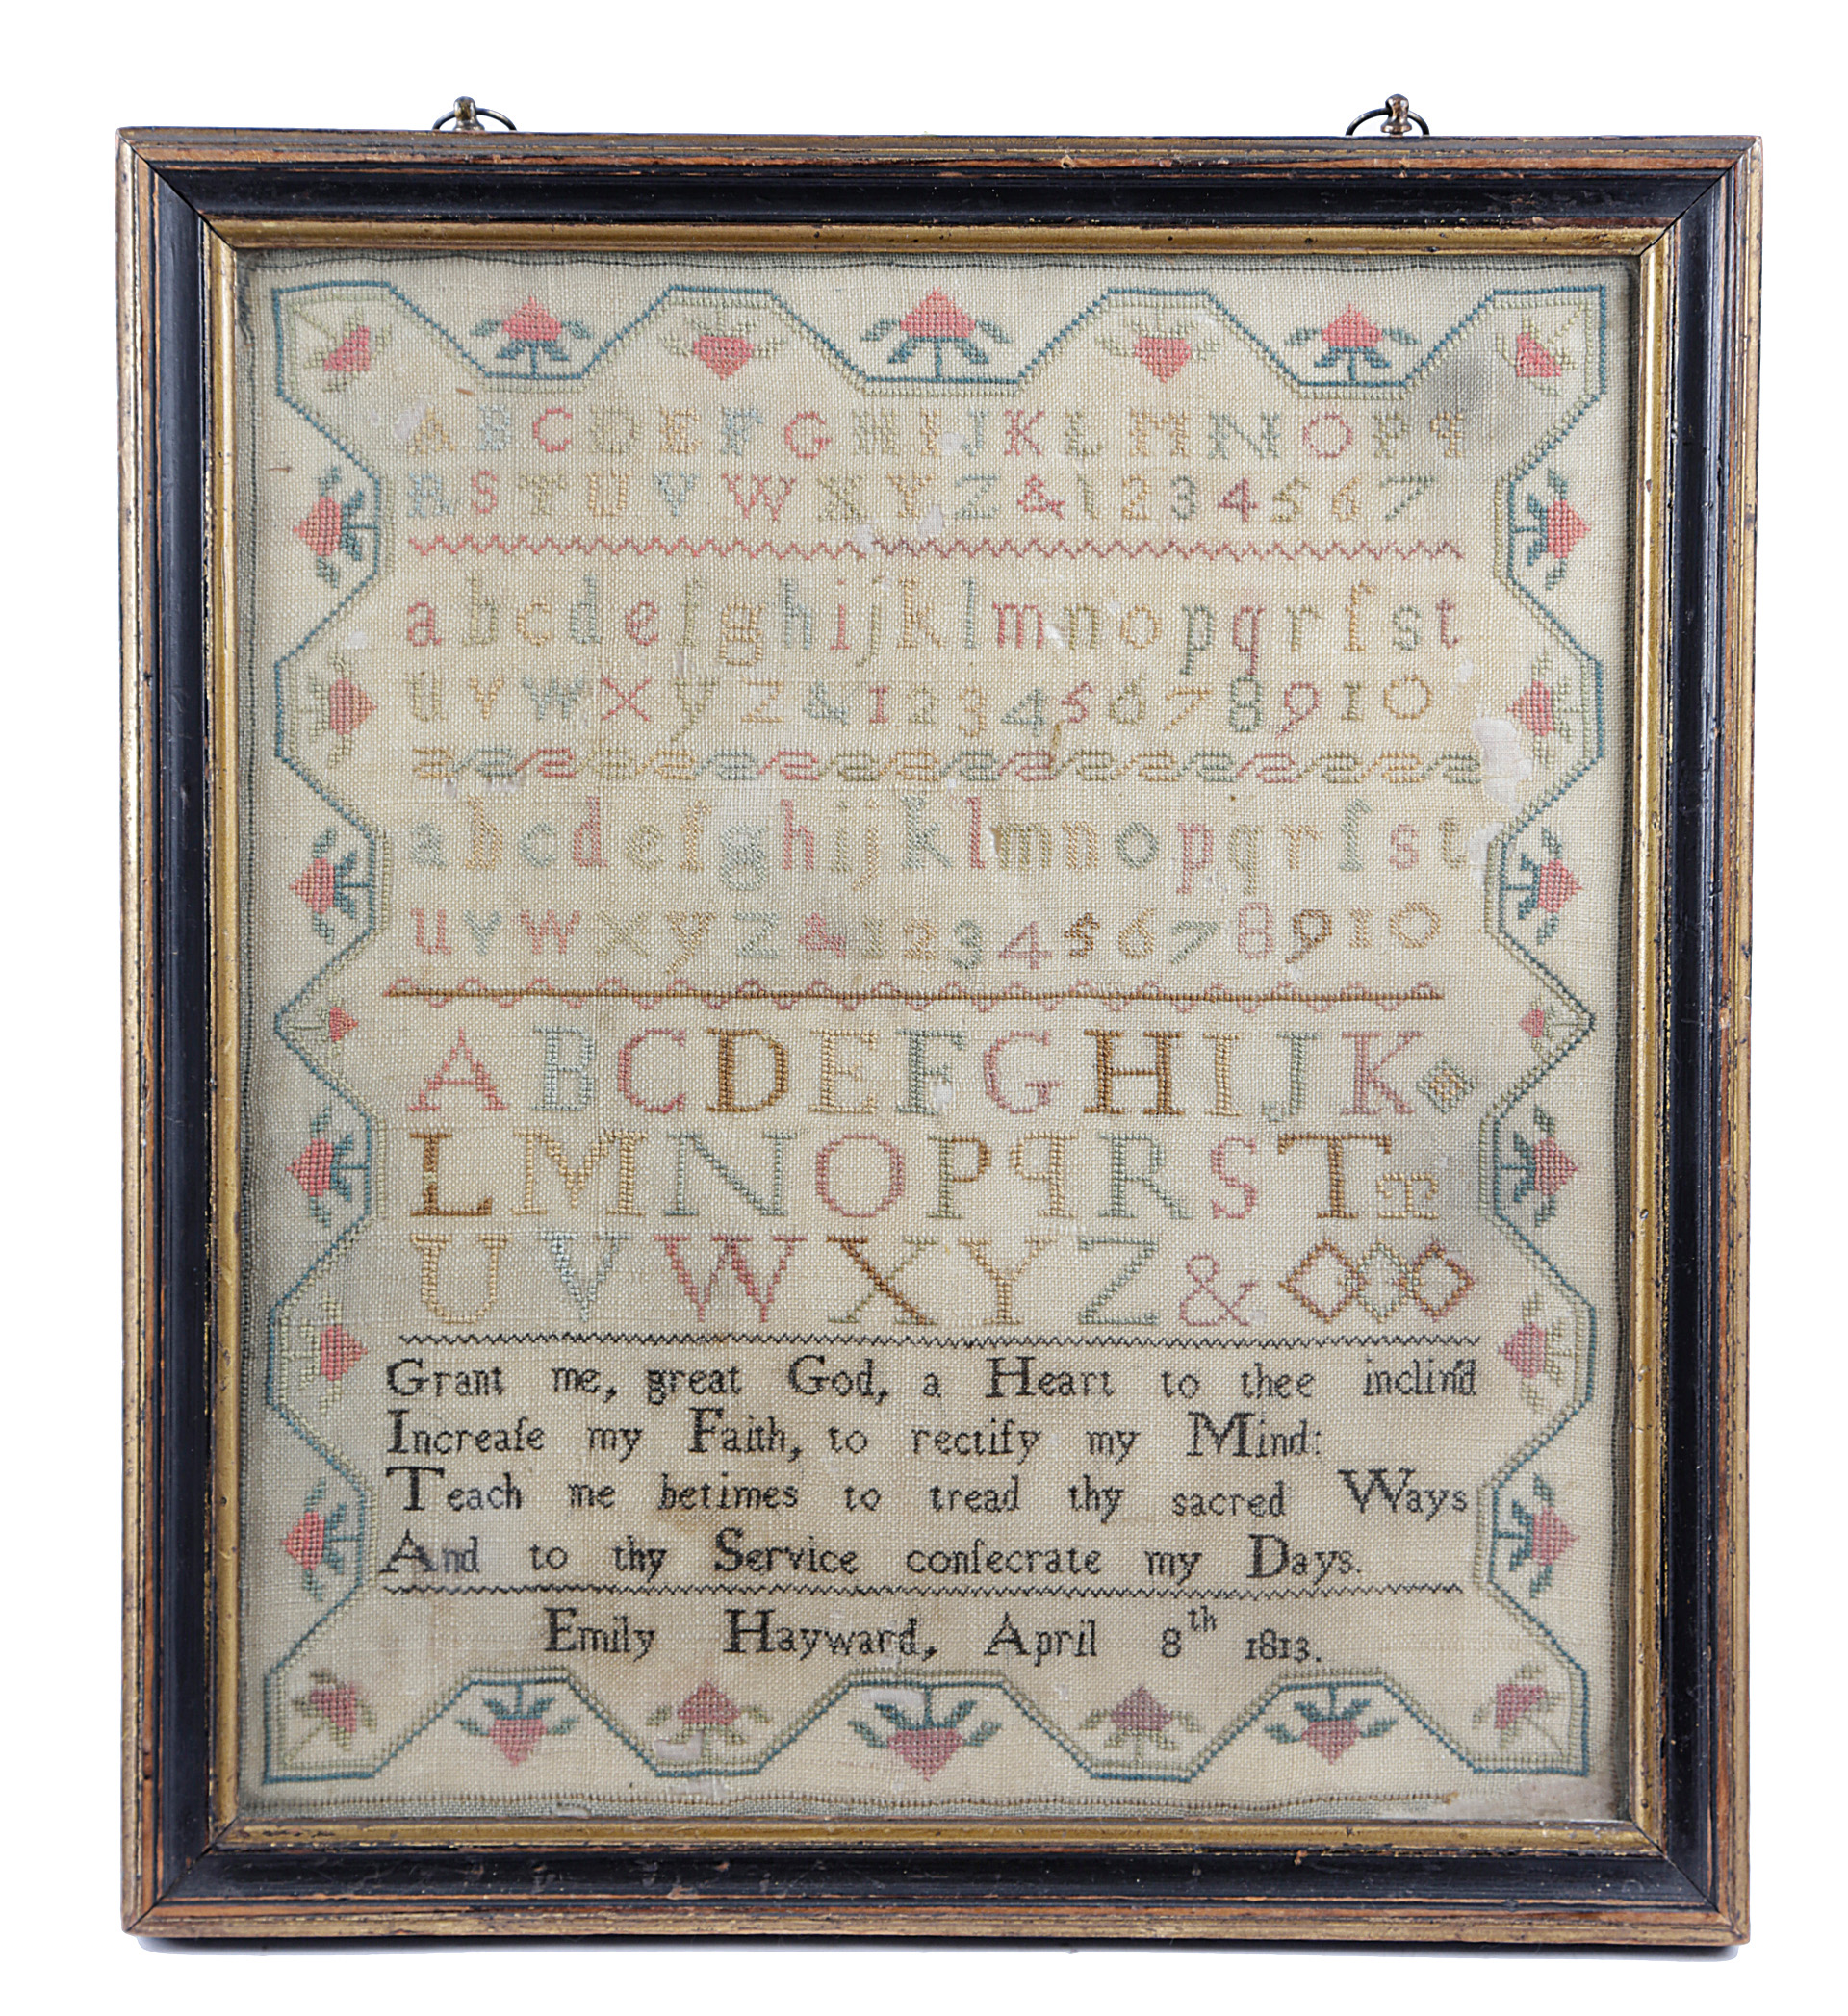 A B C D E F G H I J K L M N O P q
R S T U V W X Y Z & 1 2 3 4 5 6 7
a b c d e f g h i j k l m n o p q r ſ s t
u v w x y z & 1 2 3 4 5 6 7 8 9 1 0
a b c d e f g h i j k l m n o p q r ſ s t
u v w x y z & 1 2 3 4 5 6 7 8 9 1 0
A B C D E F G H I J K
L M N O P q R S T T
U V W X Y Z &
Grant me, great God, a Heart to thee inclin'd
Increaſe my Faith, to rectify my Mind:
Teach me betimes to tread thy sacred Ways
And to thy Service conſecrate my Days.
Emily Hayward, April 8th 1813.